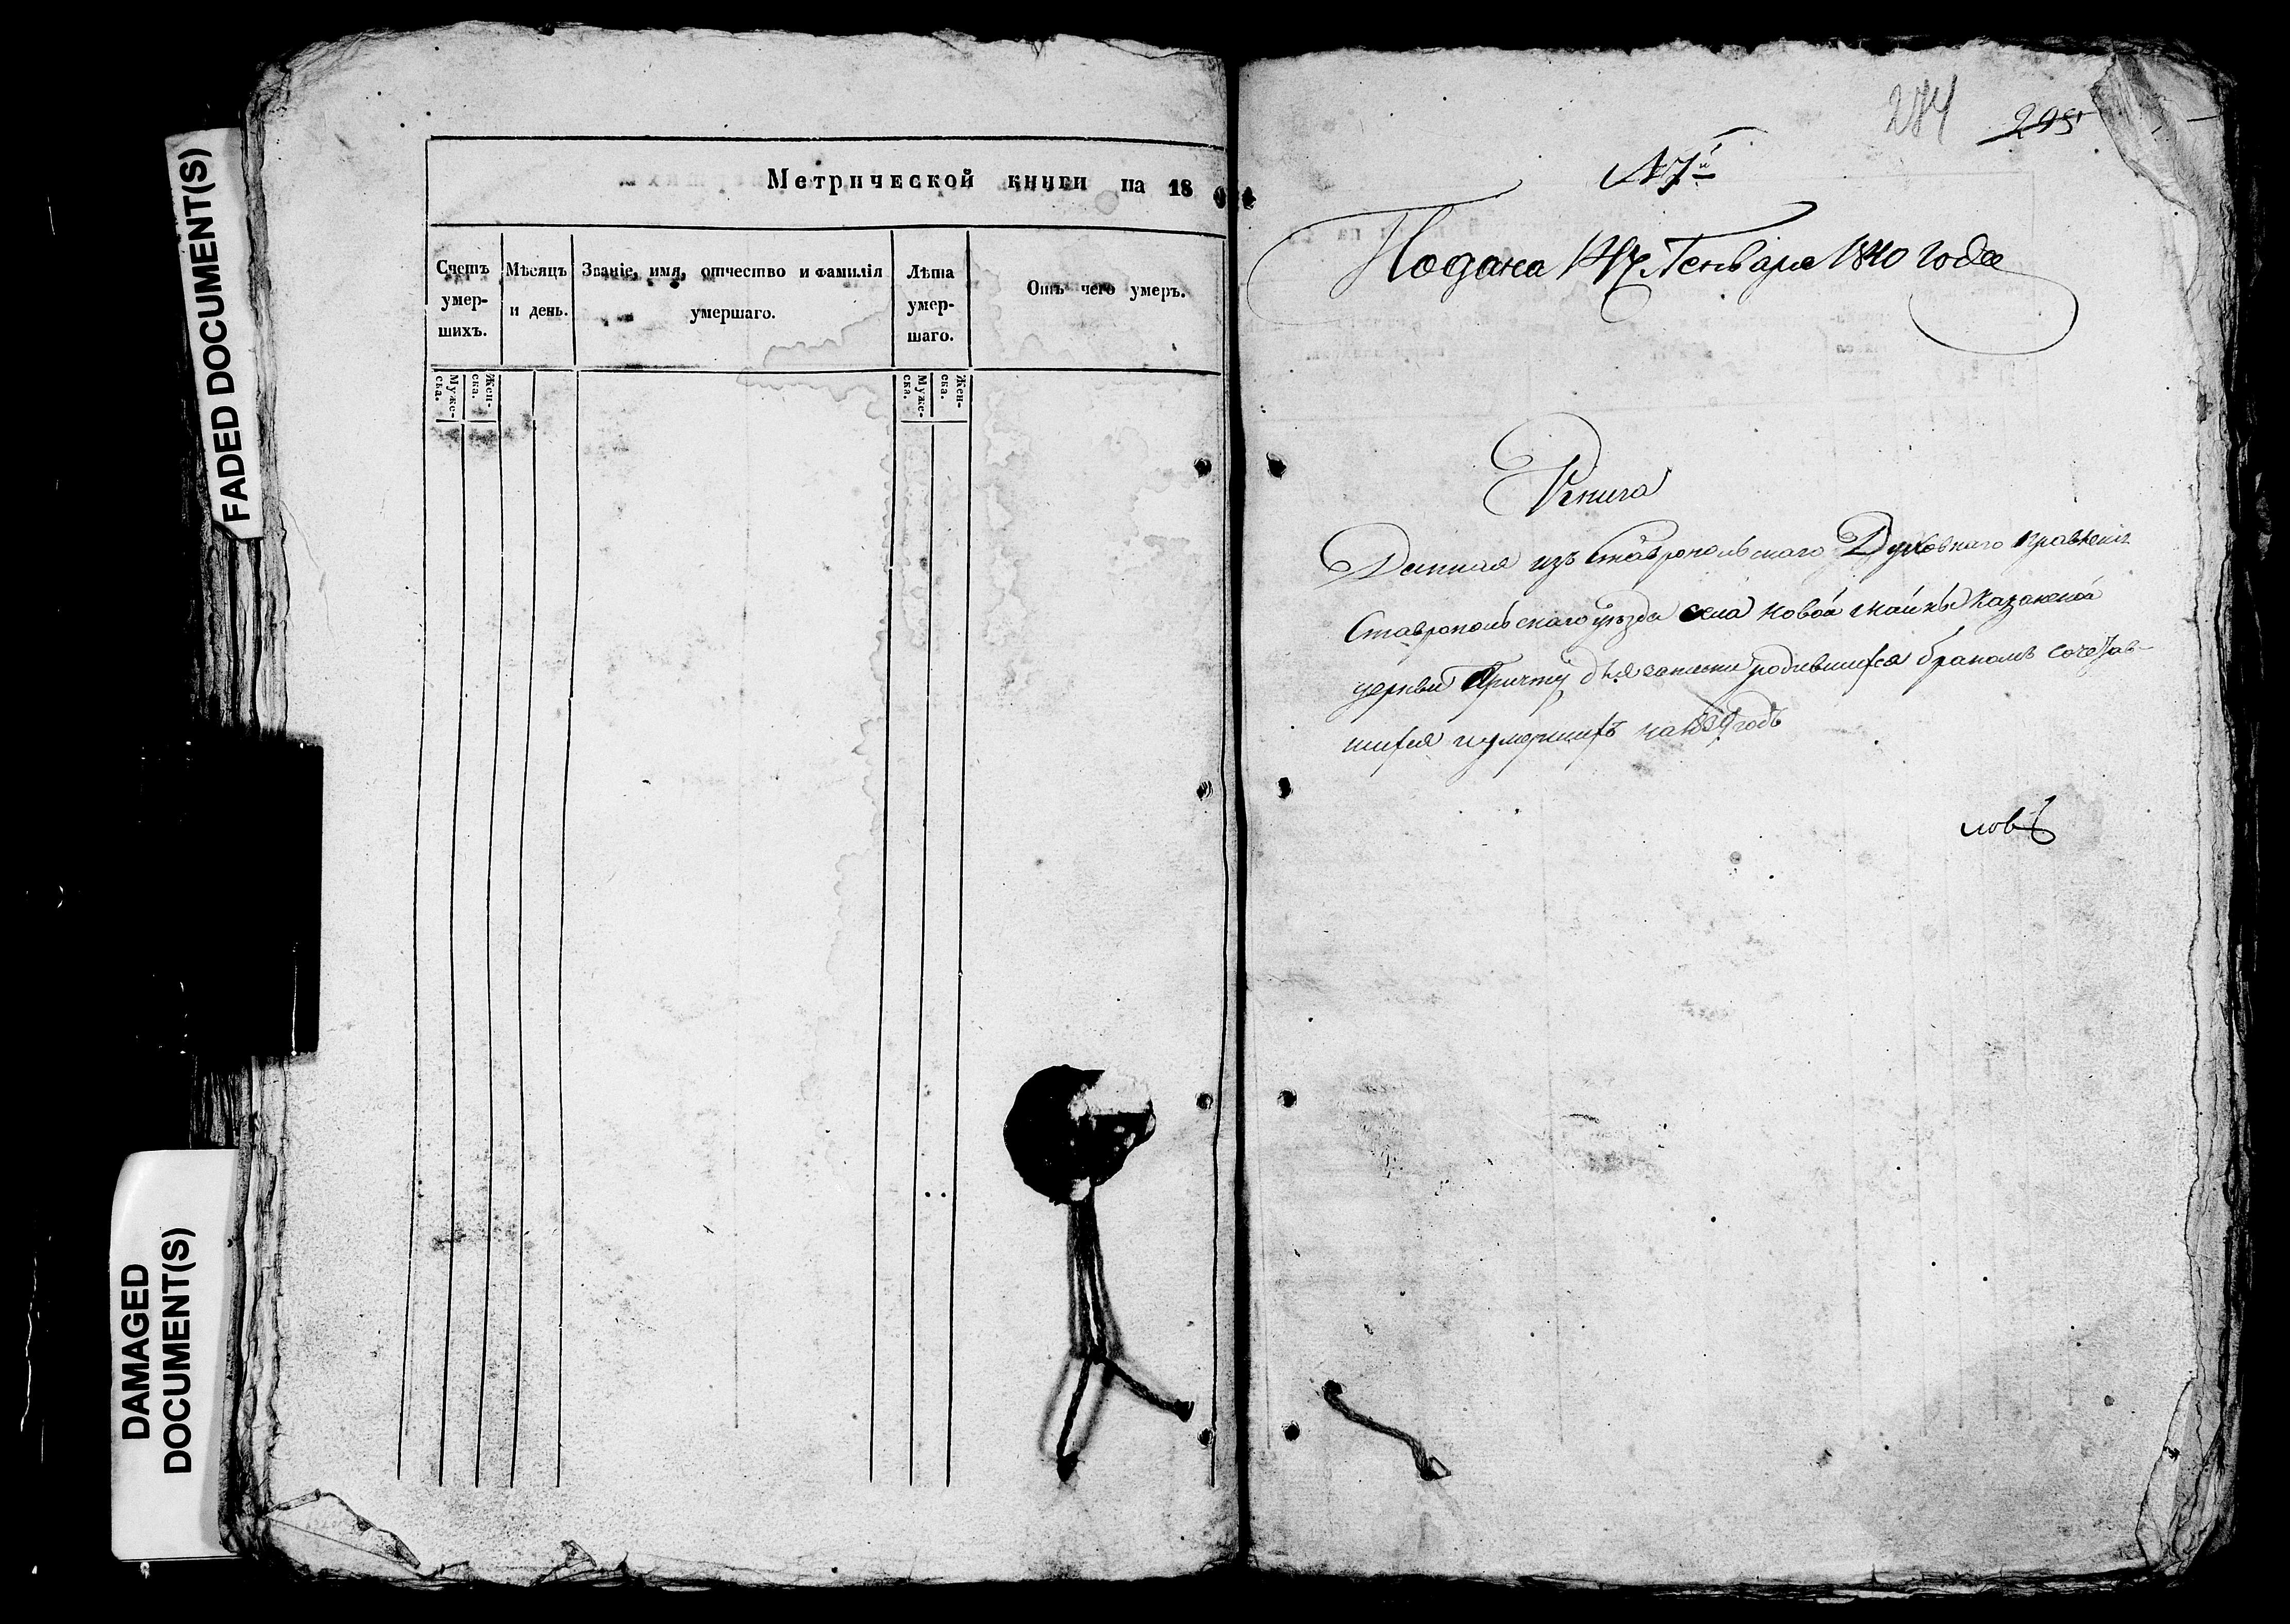 FADED DOCUMENT(S)
DAMAGED
DOCUMENT(S)
Метрической книги на 18
Счетъ умер-шихъ.
Мѣсяцъ и день.
Званіе, имя, отчество и фамилія умершаго.
Лѣта умер-шаго.
Отъ чего умеръ.
Муже-ска.
Жен-ска.
Муже-ска.
Жен-ска.
284
295
N 7й
Подана Генваря 1840 года
Книга
Данная изъ Ставропольскаго Духовнаго правленія
Ставропольскаго уѣзда села Новой Майны Казанской
церкви Причту для записки родившихся бракомъ сочетав-
шихся и умершихъ на 1839 годъ
ловъ